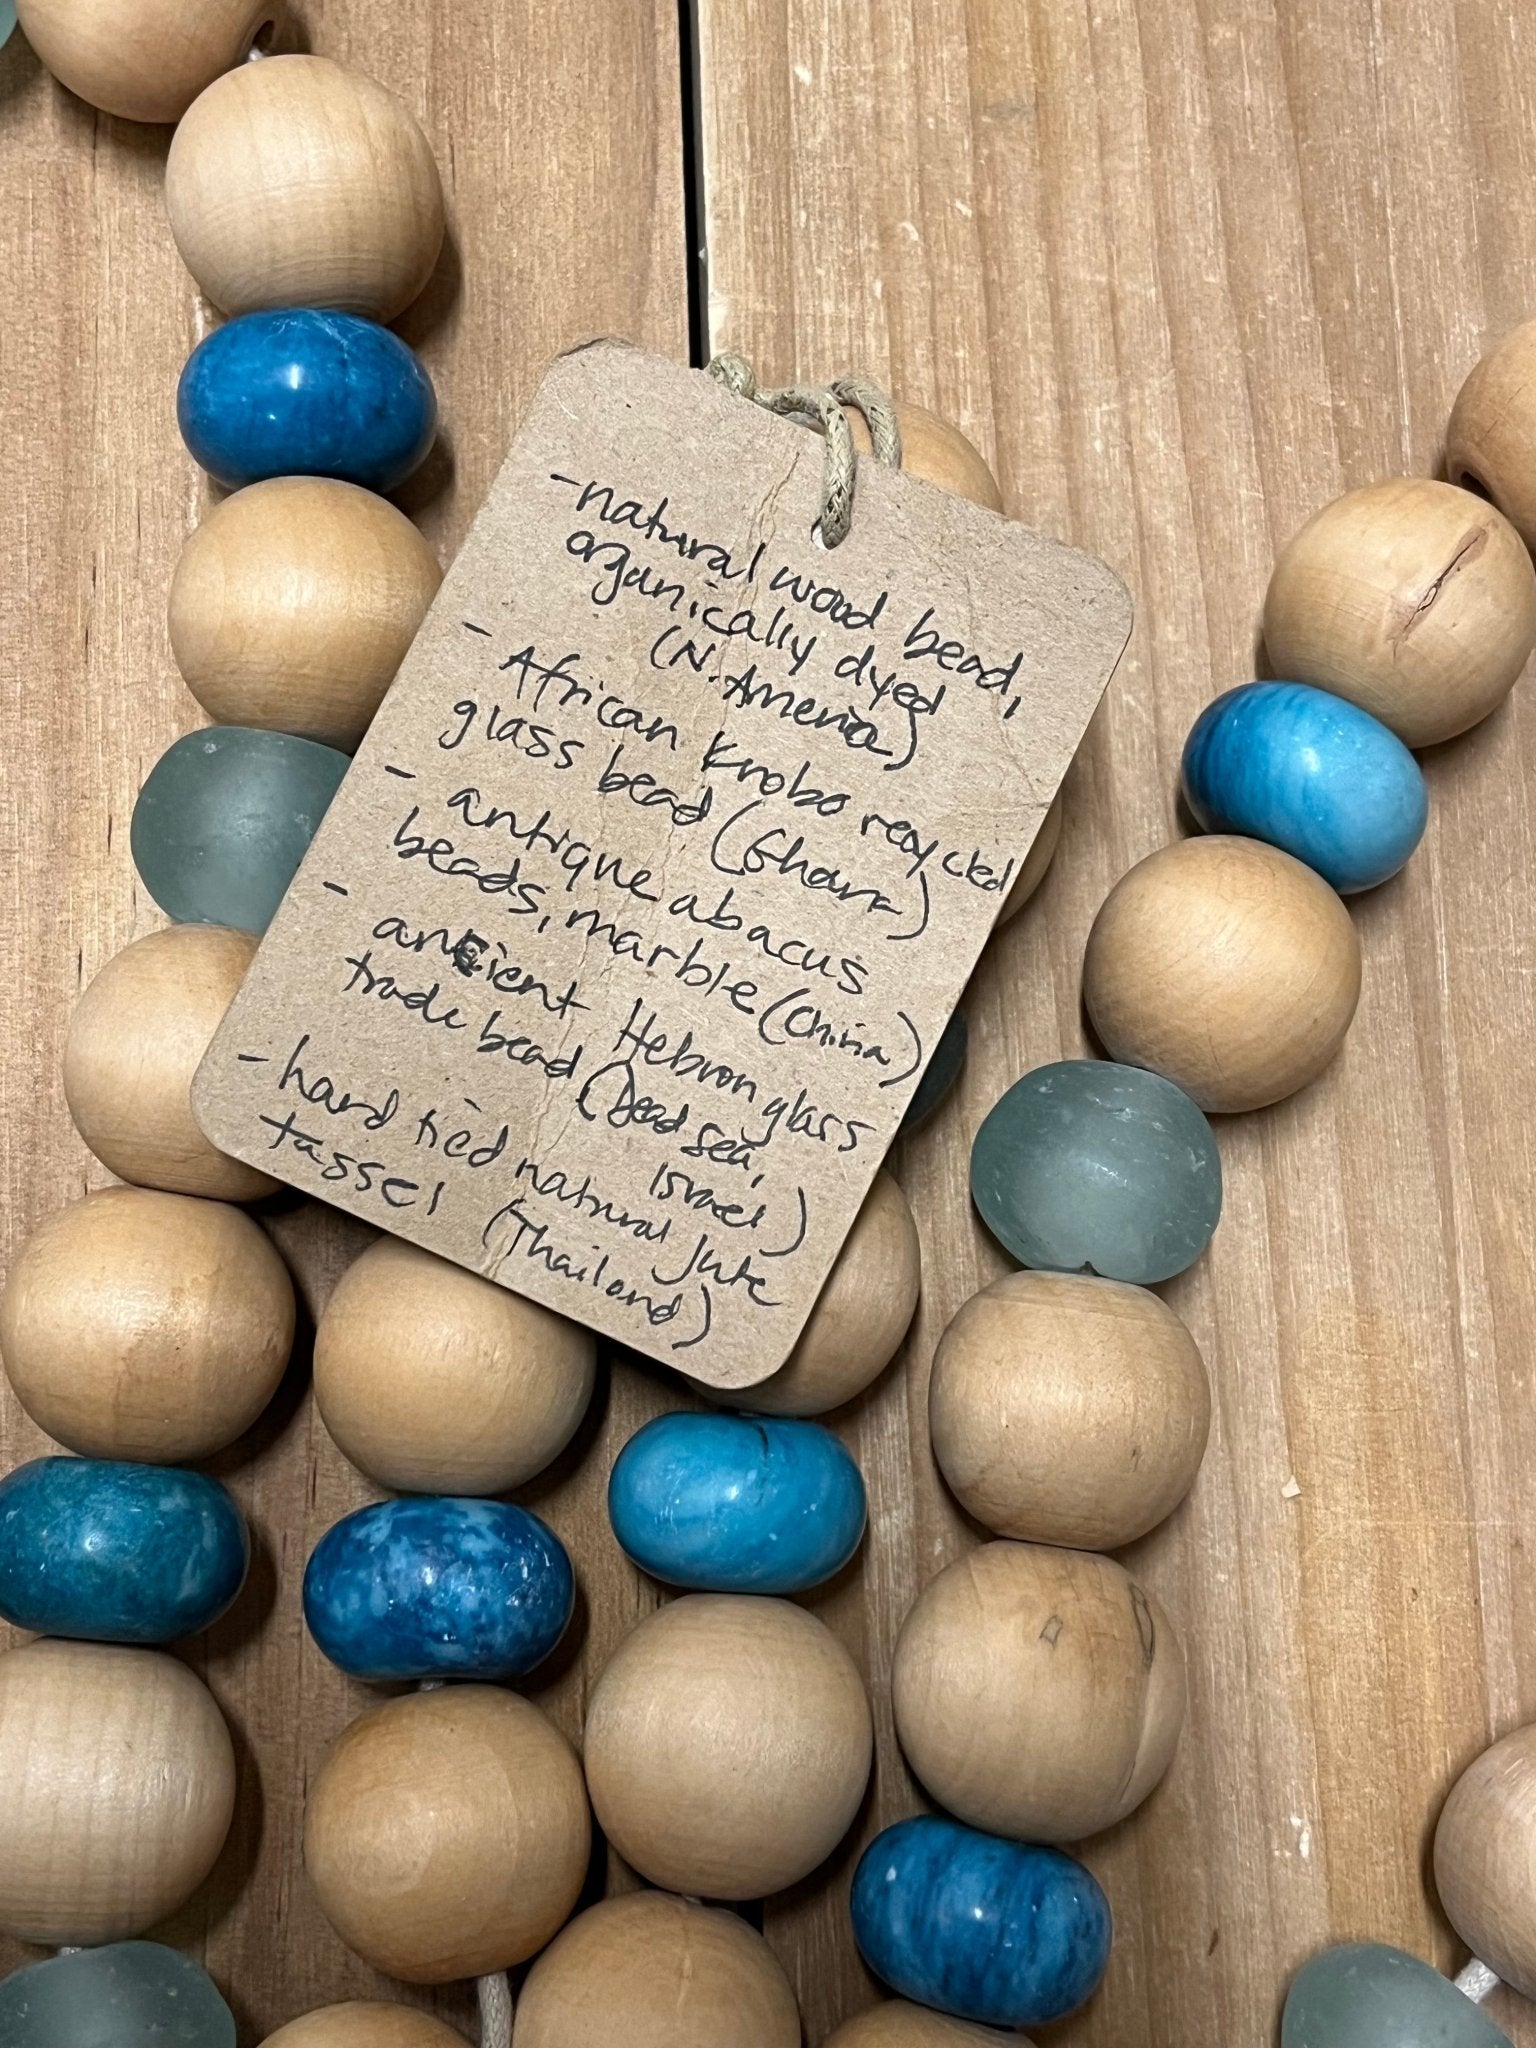 - natural wood bead,
organically dyed
(N. America)
- African Krobo recycled
glass bead (Ghana)
- antique abacus
beads, marble (China)
- ancient Hebron glass
trade bead (Dead Sea,
Israel)
- hand tied natural jute
tassel (Thailand)